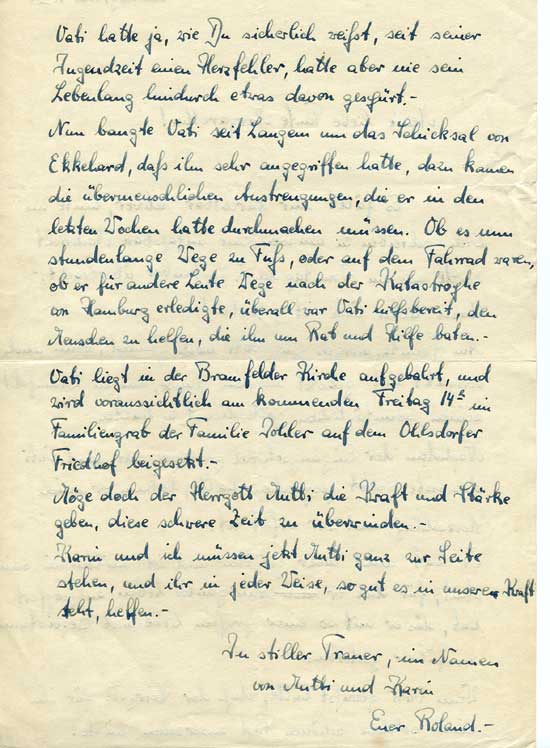 Vati hatte ja, wie Du sicherlich weißt, seit seiner
Jugendzeit einen Herzfehler, hatte aber nie sein
Lebenlang hindurch etwas davon gespürt.-
Nun bangte Vati seit Langem um das Schicksal von
Ekkehard, daß ihn sehr angegriffen hatte, dazu kamen
die übermenschlichen Anstrengungen, die er in den
letzten Wochen hatte durchmachen müssen. Ob es nun
stundenlange Wege zu Fuß, oder auf dem Fahrrad waren,
ob er für andere Leute Wege nach der Katastrophe
von Hamburg erledigte, überall war Vati hilfsbereit, den
Menschen zu helfen, die ihn um Rat und Hilfe baten.-
Vati liegt in der Bramfelder Kirche aufgebahrt, und
wird voraussichtlich am kommenden Freitag 14h im
Familiengrab der Familie Wohler auf dem Ohlsdorfer
Friedhof beigesetzt.-
Möge doch der Herrgott Mutti die Kraft und Stärke
geben, diese schwere Zeit zu überwinden.-
Karin und ich müssen jetzt Mutti ganz zur Seite
stehen, und ihr in jeder Weise, so gut es in unseren Kraft
steht, helfen.-
In stiller Trauer, im Namen
von Mutti und Karin
Euer Roland.-